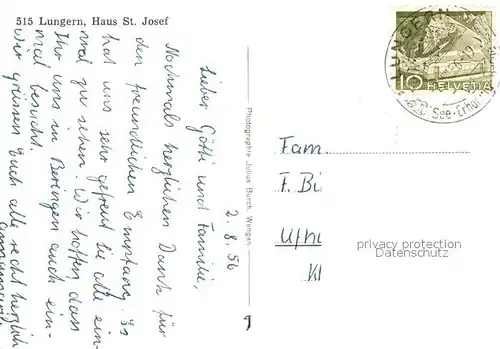 515 Lungern, Haus St. Josef
2. 8. 56
Lieber Götti und Familie,
Nochmals herzlichen Dank für
den freundlichen Empfang. Es
hat uns sehr gefreut Sie alle ein-
mal zu sehen. Wir hoffen dass
Ihr uns in Beringen auch ein-
mal besucht.
Wir grüssen Euch alle recht herzlich
Photographie Julius Burch, Wengen
LUNGERN
See-Erhol
10 HELVETIA
Fam
F. Bi
Ufhi
Kl
privacy protection
Datenschutz